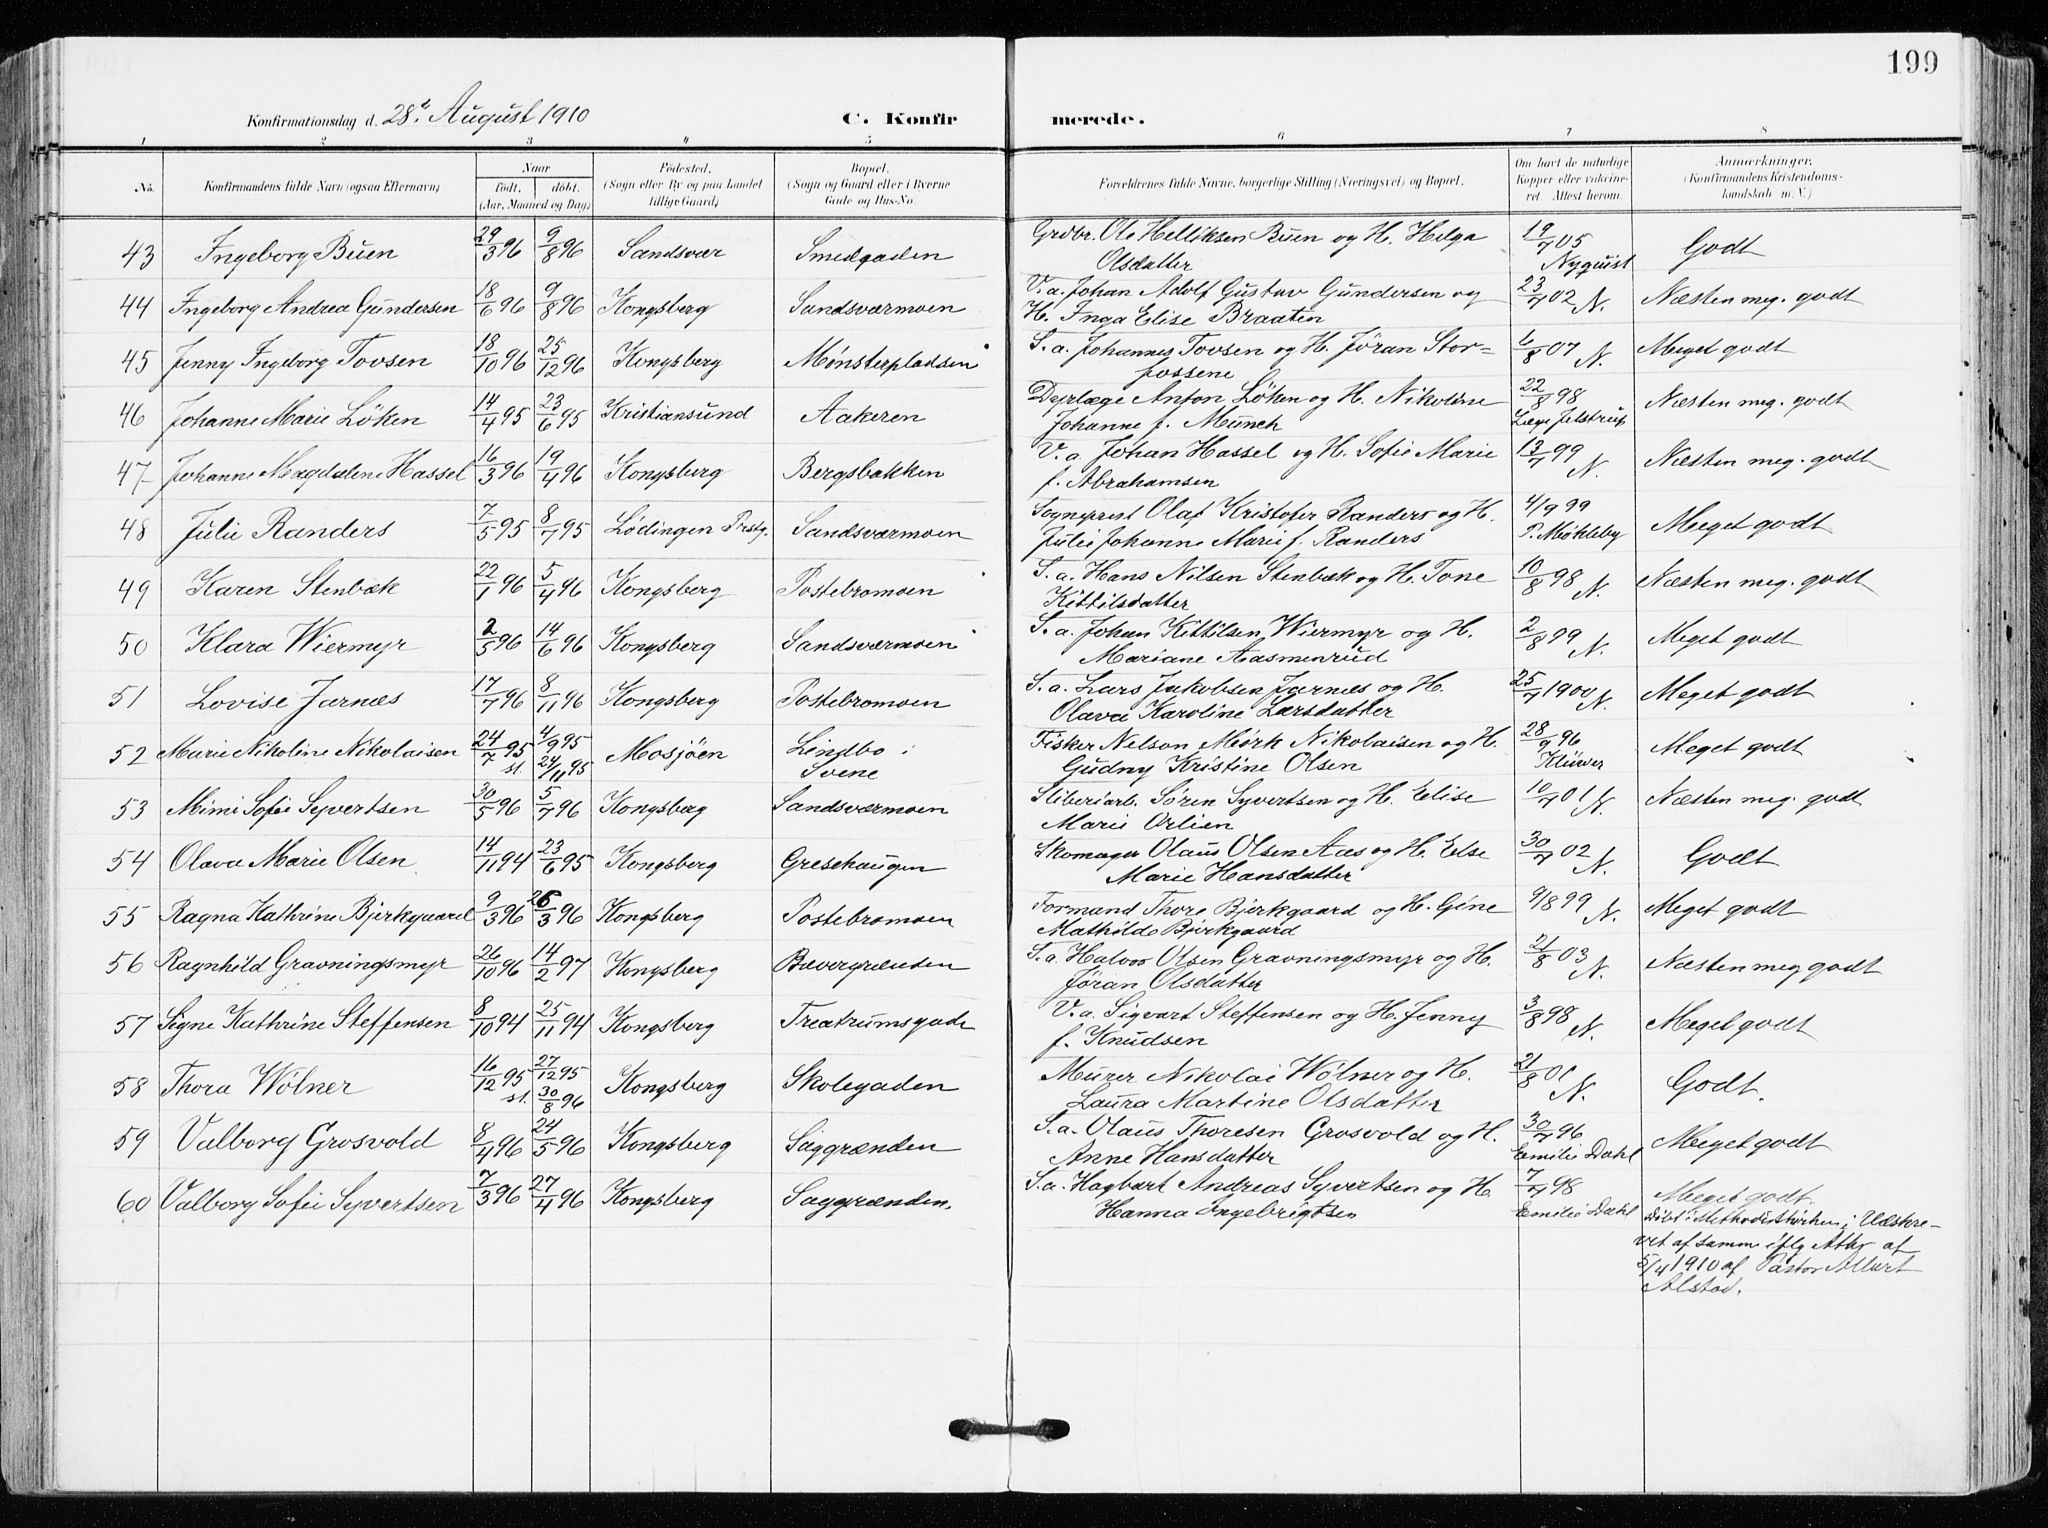 199
Konfirmationsdag d. 28de August 1910 C. Konfirmerede.
1 2 3 4 5 6 7 8
No. Konfirmandens fulde Navn (ogsaa Efternavn) Naar født. døbt. (Aar, Maaned og Dag) Fødested. (Sogn eller By og paa Landet tillige Gaard) Bopæl. (Sogn og Gaard eller i Byerne Gade og Hus-No. Forældrenes fulde Navne, borgerlige Stilling (Næringsvei) og Bopæl. Om havt de naturlige Kopper eller vakcineret. Attest herom. Anmærkninger. (Konfirmandens Kristendomskundskab m. V.)
43 Ingeborg Buen 29/3 96 9/8 96 Sandsvær Smedgaden Grdbr. Ole Helliksen Buen og H. Helga 19/7 05 Godt
Olsdatter Nyquist
44 Ingeborg Andrea Gundersen 18/6 96 9/8 96 Kongsberg Sandsværmoen V.a. Johan Adolf Gustav Gundersen og 23/7 02 N. Næsten meg. godt
H. Inga Elise Braaten
45 Jenny Ingeborg Tovsen 18/10 96 25/12 96 Kongsberg Mønsterpladsen S.a. Johannes Tovsen og H. Jöran Stor= 6/8 07 N. Meget godt
fossene
46 Johanne Marie Löken 14/4 95 23/6 95 Kristiansund Aakeren Dyrlæge Anton Löken og H. Nikoline 22/8 98 Næsten meg. godt
Johanne f. Munch Læge Jelstrup
47 Johanne Magdalene Hassel 16/3 96 19/4 96 Kongsberg Bergsbakken V.a. Johan Hassel og H. Sofie Marie 13/7 99 N. Næsten meg. godt
f. Abrahamsen
48 Julie Randers 7/5 95 8/7 95 Lødingen Prstg. Sandsværmoen Sogneprest Olaf Kristofer Randers og H. 4/9 99 Meget godt
Julie Johanne Marie f. Randers P. Møkleby
49 Karen Stenbæk 22/1 96 5/4 96 Kongsberg Postebromoen S.a. Hans Nilsen Stenbæk og H. Tone 10/8 98 N. Næsten meg. godt
Kittilsdatter
50 Klara Wiermyr 2/5 96 14/6 96 Kongsberg Sandsværmoen S.a. Johan Kittilsen Wiermyr og H. 2/8 99 N. Meget godt
Mariane Aasmenrud
51 Lovise Jarnæs 17/7 96 8/11 96 Kongsberg Postebromoen S.a. Lars Jakobsen Jarnæs og H. 25/7 1900 N. Meget godt
Olava Karoline Larsdatter
52 Marie Nikoline Nikolaisen 24/7 95 st. 4/9 95 24/11 95 Mosjöen Lindbo i Svene Fisker Nelson Mørk Nikolaisen og H. 28/9 96 Meget godt
Gudny Kristine Olsen Klüwer
53 Mimi Sofie Syvertsen 30/5 96 5/7 96 Kongsberg Sandsværmoen Sliberiarb. Søren Syvertsen og H. Elise 10/7 01 N. Næsten meg. godt
Marie Orlien
54 Olava Marie Olsen 14/11 94 23/6 95 Kongsberg Gresehaugen Skomager Olaus Olsen Aas og H. Else 30/7 02 N. Godt
Marie Hansdatter
55 Ragna Kathrine Bjerkgaard 9/3 96 26/3 96 Kongsberg Postebromoen Formand Thore Bjerkgaard og H. Gine 9/8 99 N. Meget godt
Mathilde Bjerkgaard
56 Ragnhild Gravningsmyr 26/10 96 14/2 97 Kongsberg Bævergrænden S.a. Halvor Olsen Gravningsmyr og H. 21/8 03 N. Næsten meg godt
Jøran Olsdatter
57 Signe Kathrine Steffensen 8/10 94 25/11 94 Kongsberg Treatrumsgade V.a. Sigvart Steffensen og H. Jenny 3/8 98 N. Meget godt
f. Knudsen
58 Thora Wölner 16/12 95 st. 27/12 95 30/8 96 Kongsberg Skolegaden Murer Nikolai Wölner og H. 21/8 01 N. Godt.
Laura Martine Olsdatter
59 Valborg Grosvold 8/4 96 24/5 96 Kongsberg Saggrænden S.a. Olaus Thoresen Grosvold og H. 30/7 96 Meget godt
Anne Hansdatter Emilie Dahl
60 Valborg Sofie Syvertsen 7/3 96 27/4 96 Kongsberg Saggrænden. S.a. Hagbart Andreas Syvertsen og H. 7/7 98 Meget godt.
Hanna Ingebrigtsen Emilie Dahl Døbt i Methodistkirken; Udskre-
vet af samme iflg Attest af
5/4 1910 af Pastor Albert
Alstad.